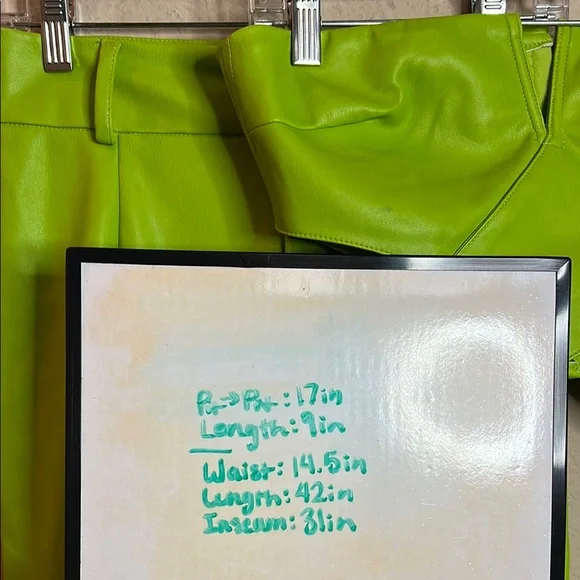 Pit→Pit: 17in
Length: 9in
Waist: 14.5in
Length: 42in
Inseam: 31in